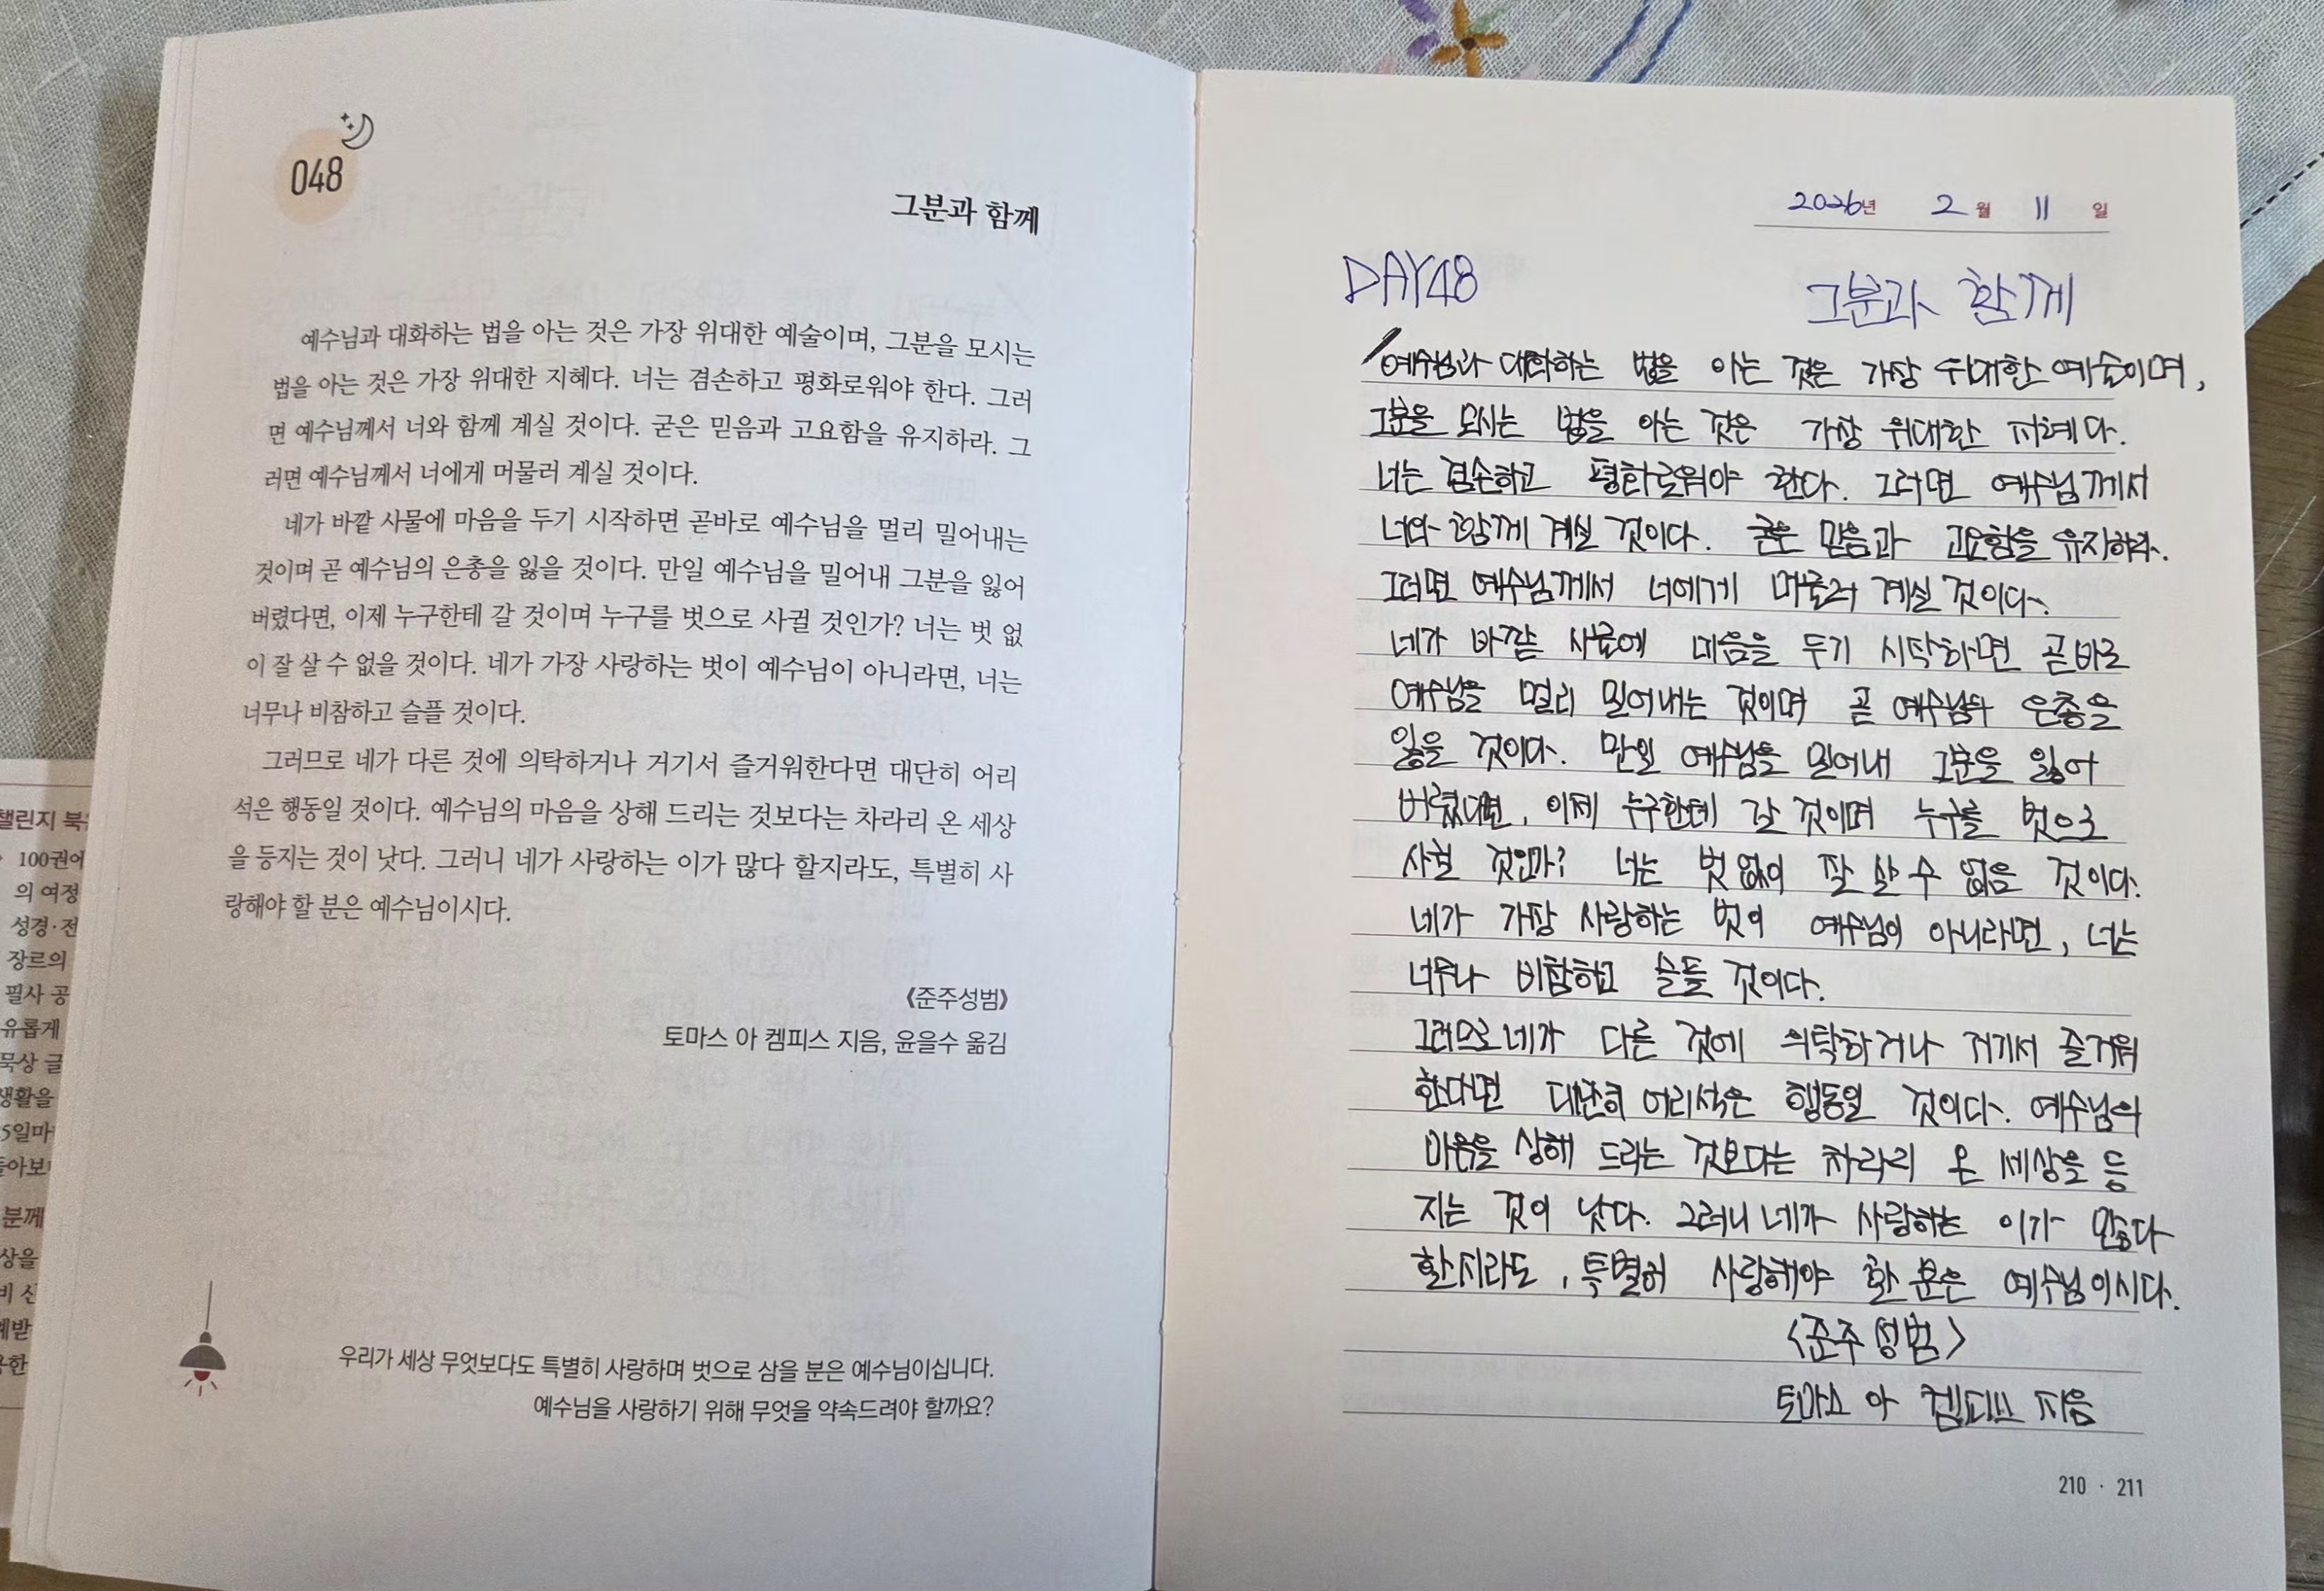 048
그분과 함께
예수님과 대화하는 법을 아는 것은 가장 위대한 예술이며, 그분을 모시는
법을 아는 것은 가장 위대한 지혜다. 너는 겸손하고 평화로워야 한다. 그러
면 예수님께서 너와 함께 계실 것이다. 굳은 믿음과 고요함을 유지하라. 그
러면 예수님께서 너에게 머물러 계실 것이다.
네가 바깥 사물에 마음을 두기 시작하면 곧바로 예수님을 멀리 밀어내는
것이며 곧 예수님의 은총을 잃을 것이다. 만일 예수님을 밀어내 그분을 잃어
버렸다면, 이제 누구한테 갈 것이며 누구를 벗으로 사귈 것인가? 너는 벗 없
이 잘 살 수 없을 것이다. 네가 가장 사랑하는 벗이 예수님이 아니라면, 너는
너무나 비참하고 슬플 것이다.
그러므로 네가 다른 것에 의탁하거나 거기서 즐거워한다면 대단히 어리
석은 행동일 것이다. 예수님의 마음을 상해 드리는 것보다는 차라리 온 세상
을 등지는 것이 낫다. 그러니 네가 사랑하는 이가 많다 할지라도, 특별히 사
랑해야 할 분은 예수님이시다.
《준주성범》
토마스 아 켐피스 지음, 윤을수 옮김
우리가 세상 무엇보다도 특별히 사랑하며 벗으로 삼을 분은 예수님이십니다.
예수님을 사랑하기 위해 무엇을 약속드려야 할까요?
챌린지 북
100권에
의 여정
성경·전
장르의
필사 공
유롭게
묵상 글
생활을
5일마
돌아보
분께
상을
2026년 2월 11일
DAY48 그분과 함께
예수님과 대화하는 법을 아는 것은 가장 위대한 예술이며,
그분을 모시는 법을 아는 것은 가장 위대한 지혜다.
너는 겸손하고 평화로워야 한다. 그러면 예수님께서
너와 함께 계실 것이다. 굳은 믿음과 고요함을 유지하라.
그러면 예수님께서 너에게 머물러 계실 것이다.
네가 바깥 사물에 마음을 두기 시작하면 곧바로
예수님을 멀리 밀어내는 것이며 곧 예수님의 은총을
잃을 것이다. 만일 예수님을 밀어내 그분을 잃어
버렸다면, 이제 누구한테 갈 것이며 누구를 벗으로
사귈 것인가? 너는 벗 없이 잘 살 수 없을 것이다.
네가 가장 사랑하는 벗이 예수님이 아니라면, 너는
너무나 비참하고 슬플 것이다.
그러므로 네가 다른 것에 의탁하거나 거기서 즐거워
한다면 대단히 어리석은 행동일 것이다. 예수님의
마음을 상해 드리는 것보다는 차라리 온 세상을 등
지는 것이 낫다. 그러니 네가 사랑하는 이가 많다
할지라도, 특별히 사랑해야 할 분은 예수님이시다.
<준주성범>
토마스 아 켐피스 지음
210 · 211